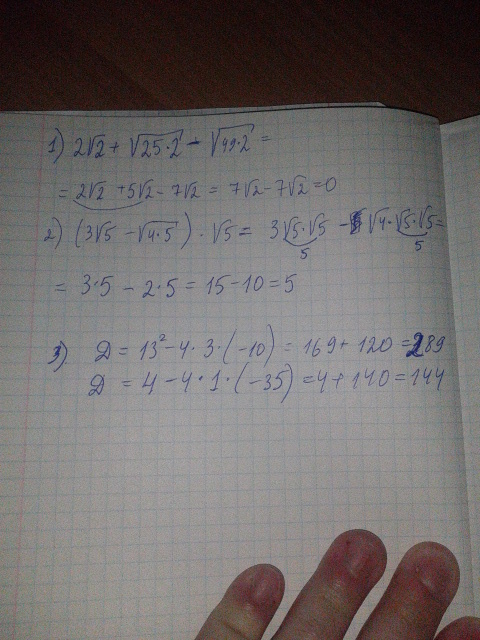 1) 2√2 + √25·2 - √49·2 =
= 2√2 + 5√2 - 7√2 = 7√2 - 7√2 = 0
2) (3√5 - √4·5) · √5 = 3√5·√5 - √4·√5·√5 =
5 5
= 3·5 - 2·5 = 15 - 10 = 5
3) D = 13² - 4·3·(-10) = 169 + 120 = 289
D = 4 - 4·1·(-35) = 4 + 140 = 144